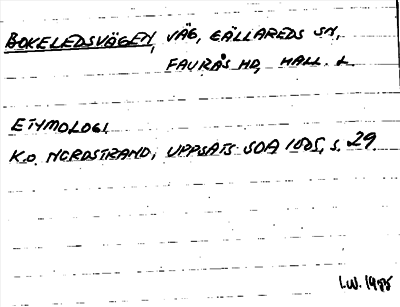 BOKELEDSVÄGEN, VÄG, GÄLLAREDS SN,
FAURÅS HD, HALL. L.
ETYMOLOGI.
K.O. NORDSTRAND, UPPSATS SOA 1005, s. 29.
I.W. 1985